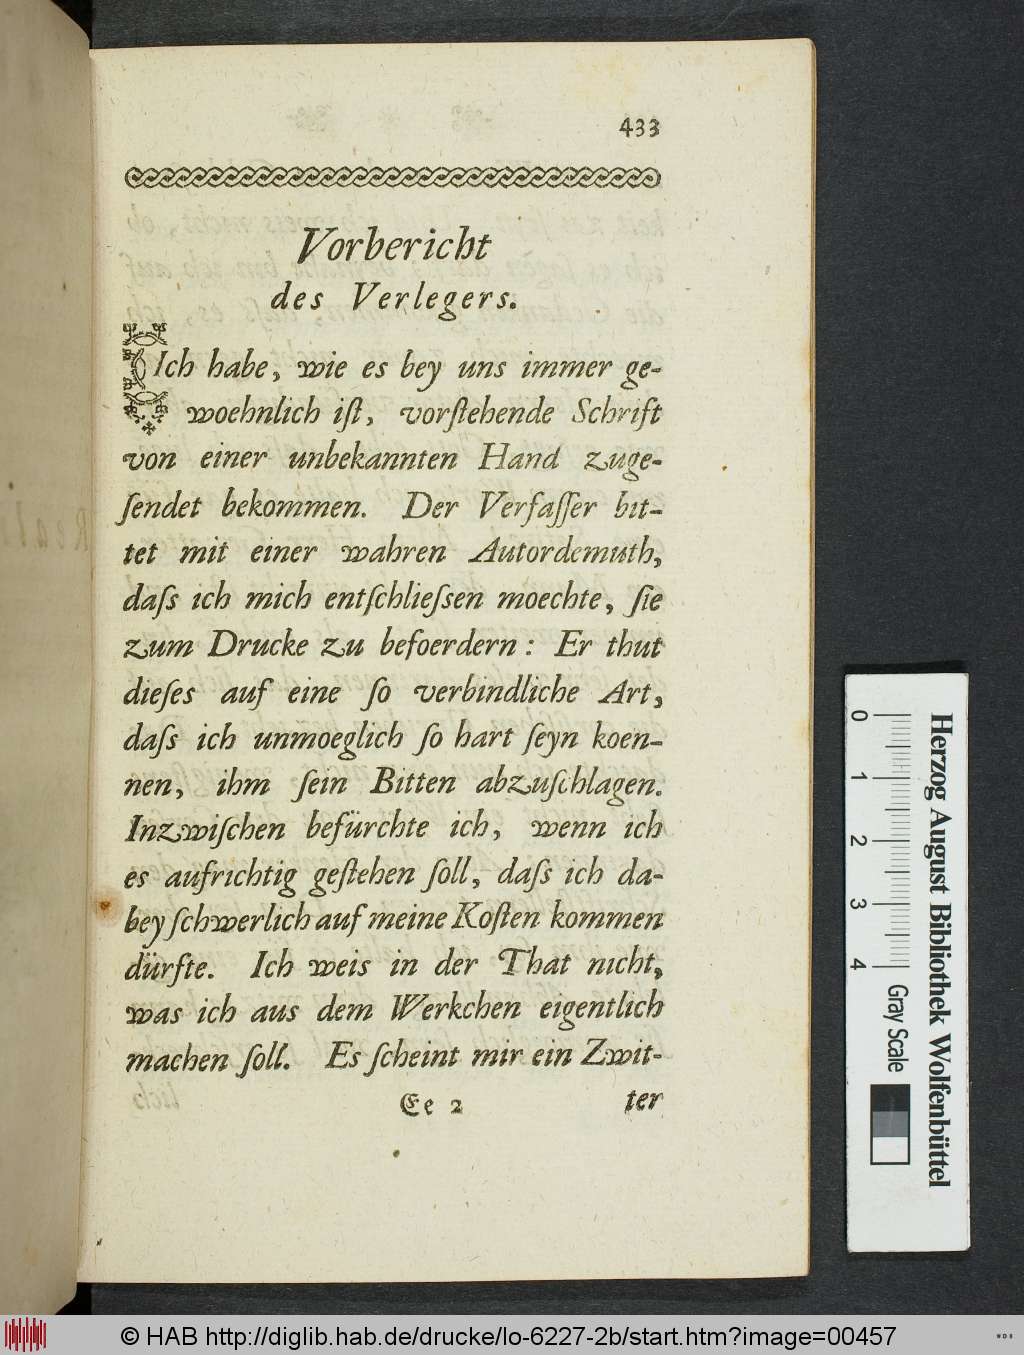 433
Vorbericht
des Verlegers.
Ich habe, wie es bey uns immer ge-
woehnlich iſt, vorſtehende Schrift
von einer unbekannten Hand zuge-
ſendet bekommen. Der Verfaſſer bit-
tet mit einer wahren Autordemuth,
daſs ich mich entſchlieſsen moechte, ſie
zum Drucke zu befoerdern: Er thut
dieſes auf eine ſo verbindliche Art,
daſs ich unmoeglich ſo hart ſeyn koen-
nen, ihm ſein Bitten abzuſchlagen.
Inzwiſchen befürchte ich, wenn ich
es aufrichtig geſtehen ſoll, daſs ich da-
bey ſchwerlich auf meine Koſten kommen
dürfte. Ich weis in der That nicht,
was ich aus dem Werkchen eigentlich
machen ſoll. Es ſcheint mir ein Zwit-
Ee 2 ter
0 1 2 3 4
Gray Scale
Herzog August Bibliothek Wolfenbüttel
© HAB http://diglib.hab.de/drucke/lo-6227-2b/start.htm?image=00457